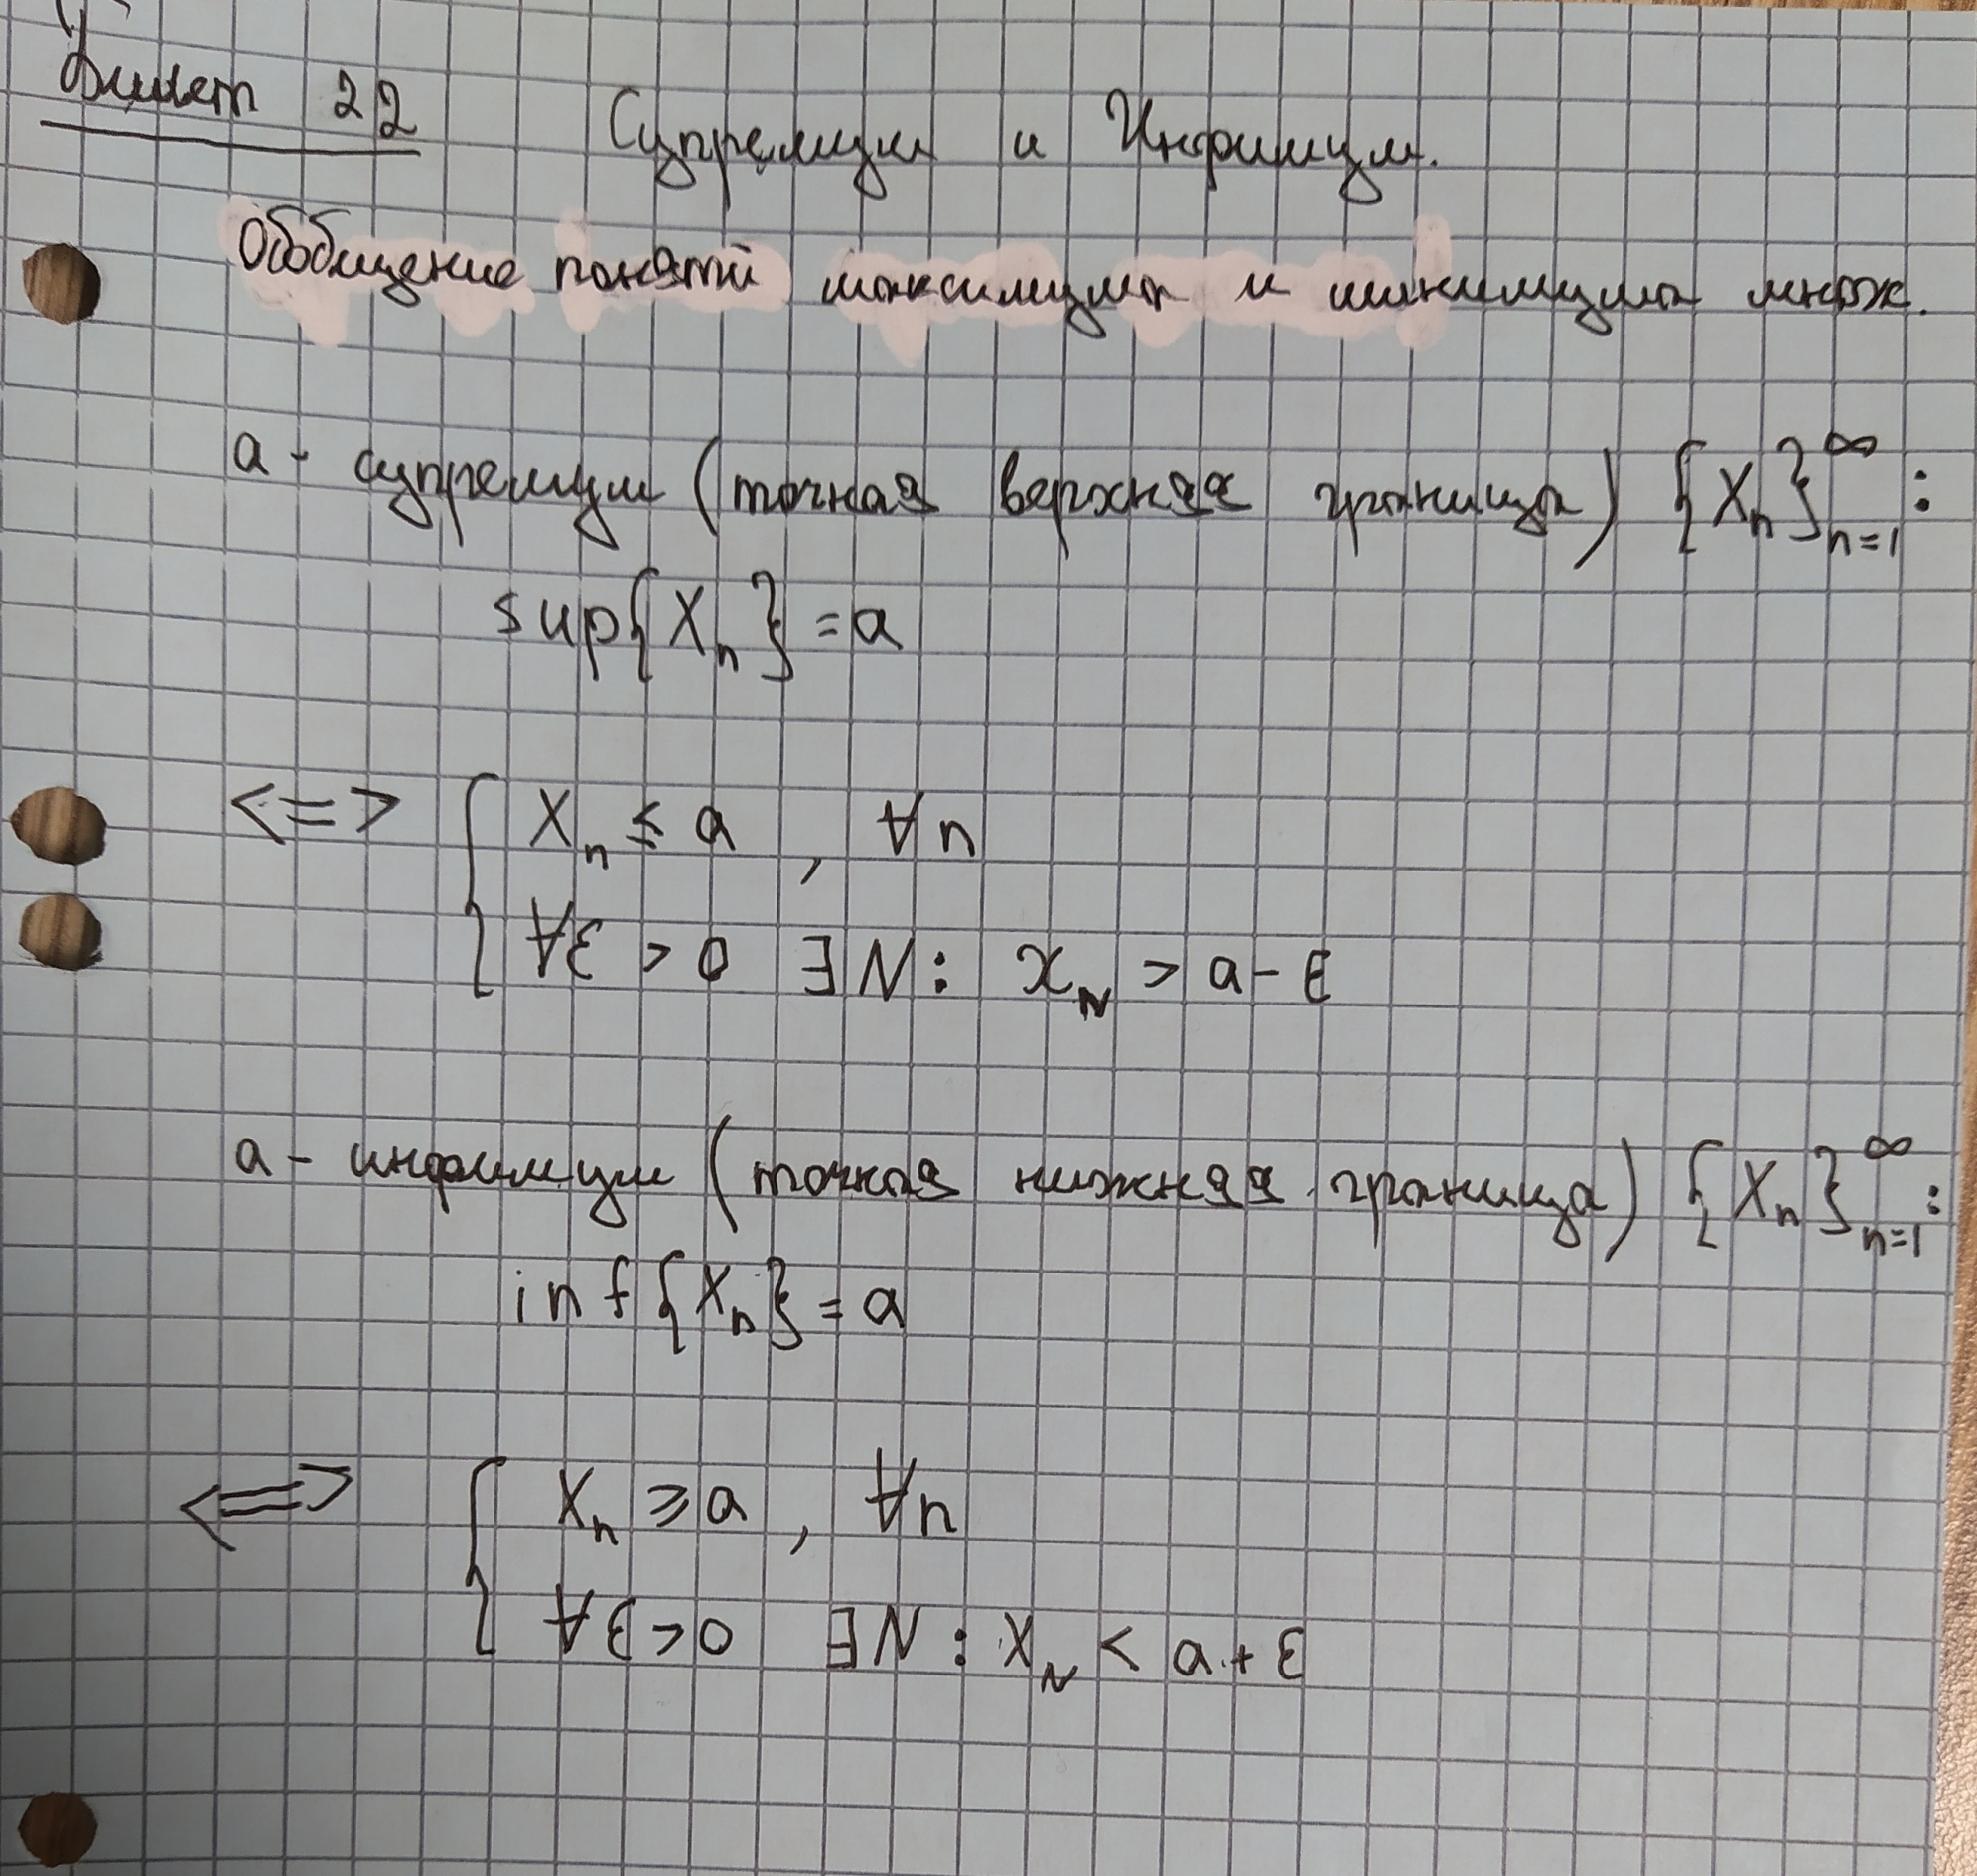 Билет 22 Супремум и Инфимум.
Обобщение понятй максимума и минимума множ.
a - супремум (точная верхняя граница) {Xₙ}ₙ₌₁^∞ :
sup{Xₙ} = a
<=> { Xₙ ≤ a , ∀n
∀ε > 0 ∃N : x_N > a - ε
a - инфимум (точная нижняя граница) {Xₙ}ₙ₌₁^∞ :
inf{Xₙ} = a
<=> { Xₙ ≥ a , ∀n
∀ε > 0 ∃N : X_N < a + ε